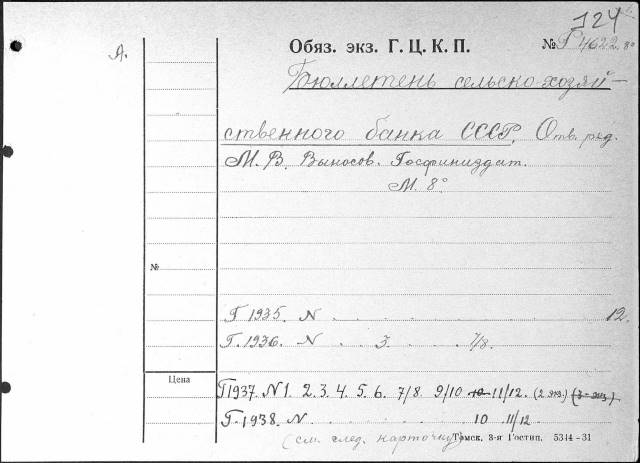 124
А.
Обяз. экз. Г. Ц. К. П. № Р 4622 8°
Бюллетень сельско-хозяй-
ственного банка СССР. Отв. ред.
М. В. Выносов. Госфиниздат.
М. 8°
№
Г. 1935. N . . . . . . 12.
Г. 1936. N . . 3. . . . 7/8.
Цена
Г 1937. N 1. 2. 3. 4. 5. 6. 7/8. 9/10 10 11/12. (2 экз.) (3-экз)
Г. 1938. N . . . . . 10 11/12
(см. след. карточку) Томск, 3-я Гостип. 5344—31